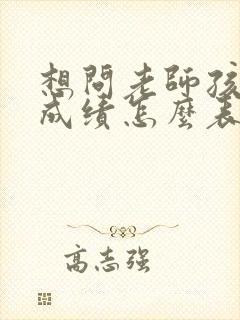 想問老師孩
成績怎麼表
高志强